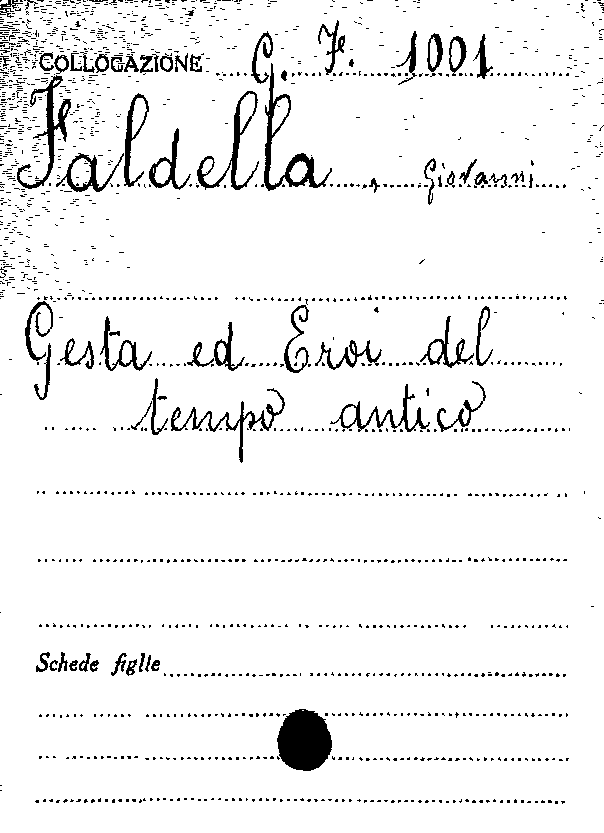 COLLOCAZIONE G. F. 1001
Faldella, Giovanni
Gesta ed Eroi del
tempo antico
Schede figlie